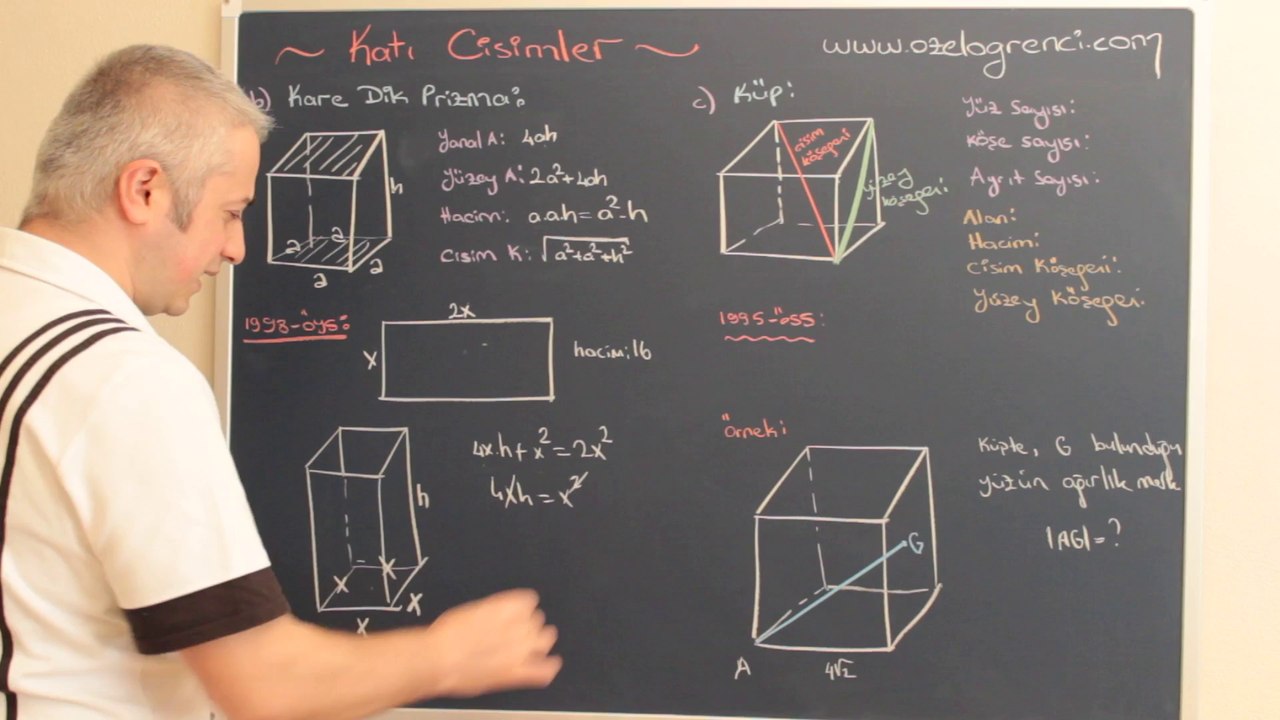 ~ Katı Cisimler ~
www.ozelogrenci.com
b) Kare Dik Prizma:
Yanal A: 4ah
Yüzey A: 2a²+4ah
Hacim: a.a.h = a².h
Cisim K: √a²+a²+h²
h
a a
a
a
c) Küp:
cisim
köşegeni
yüzey
köşegeni
Yüz Sayısı:
Köşe Sayısı:
Ayrıt Sayısı:
Alan:
Hacim:
Cisim Köşegeni:
Yüzey Köşegeni:
1998-öys:
2x
x
hacim:16
4x.h+x²=2x²
4xh=x²
h
x x
x
x
1995-öss:
Örnek:
Küpte, G bulunduğu
yüzün ağırlık merk
|AG|=?
G
A
4√2